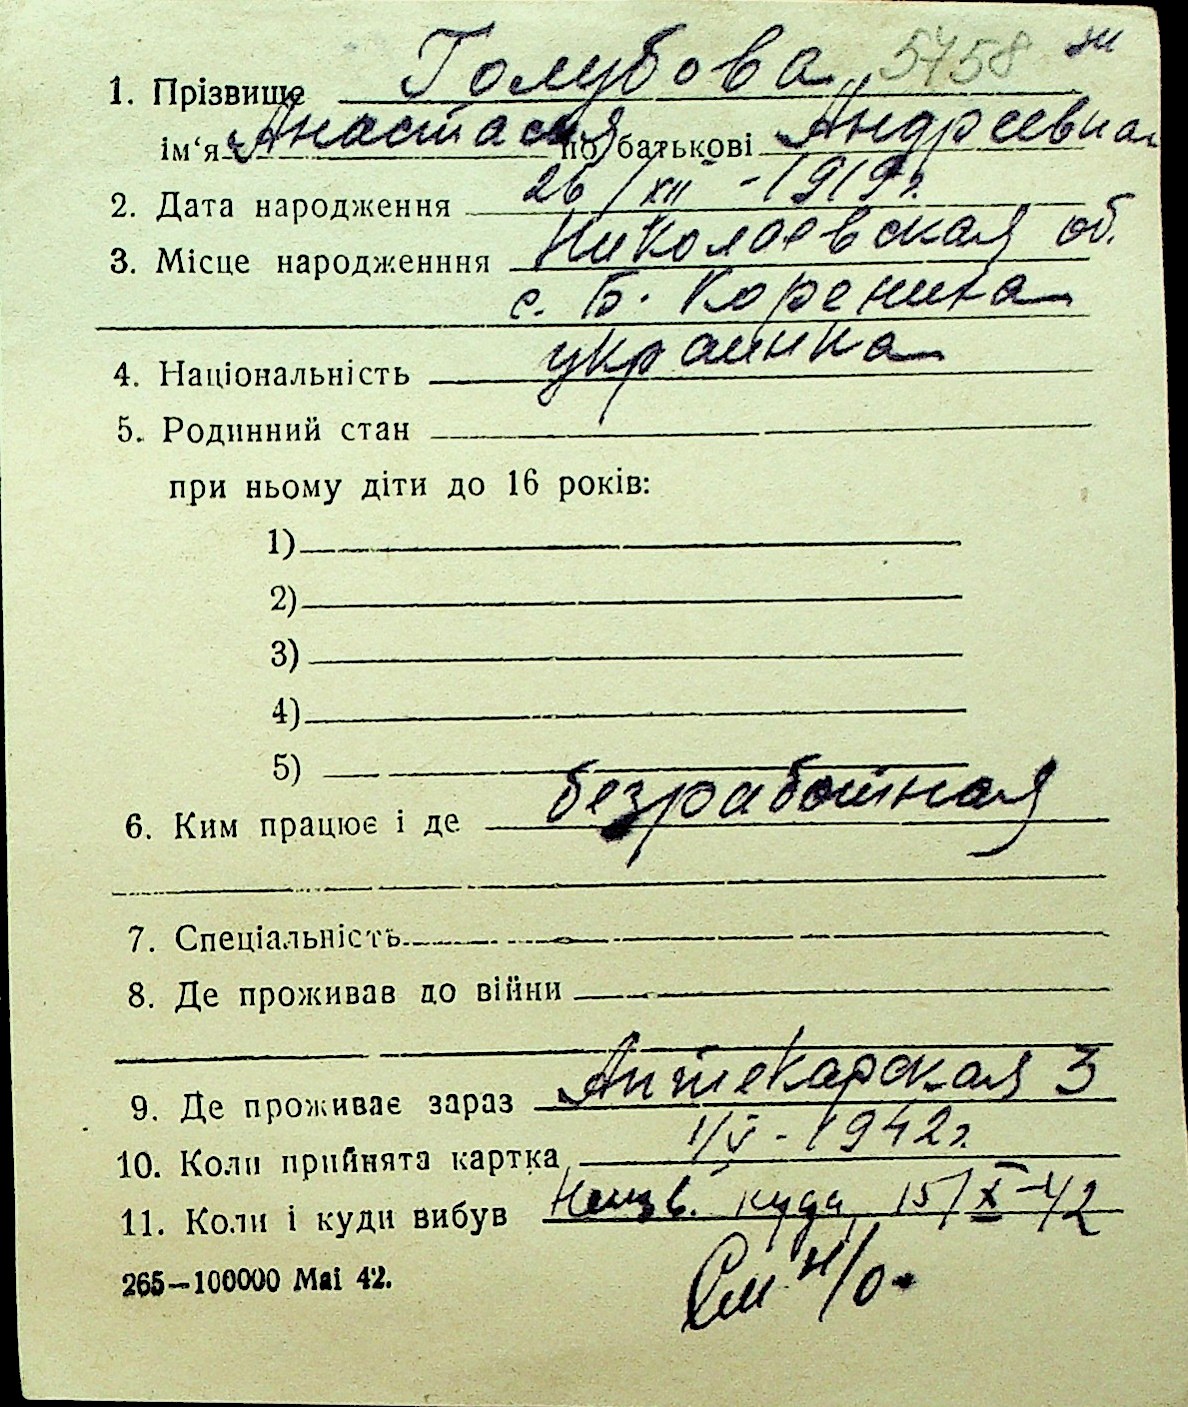 5458
1. Прізвище Голубова
ім‘я Анастасия по батькові Андреевна
2. Дата народження 26/XII - 1919 г.
3. Місце народженння Николаевская об.
с. Б. Корениха
4. Національність украинка
5. Родинний стан
при ньому діти до 16 років:
1)
2)
3)
4)
5)
6. Ким працює і де безработная
7. Спеціальність
8. Де проживав до війни
9. Де проживає зараз Аптекарская 3
10. Коли прийнята картка 1/V - 1942 г.
11. Коли і куди вибув Неизв. куда 15/X-42
265—100000 Mai 42.
См н/о.